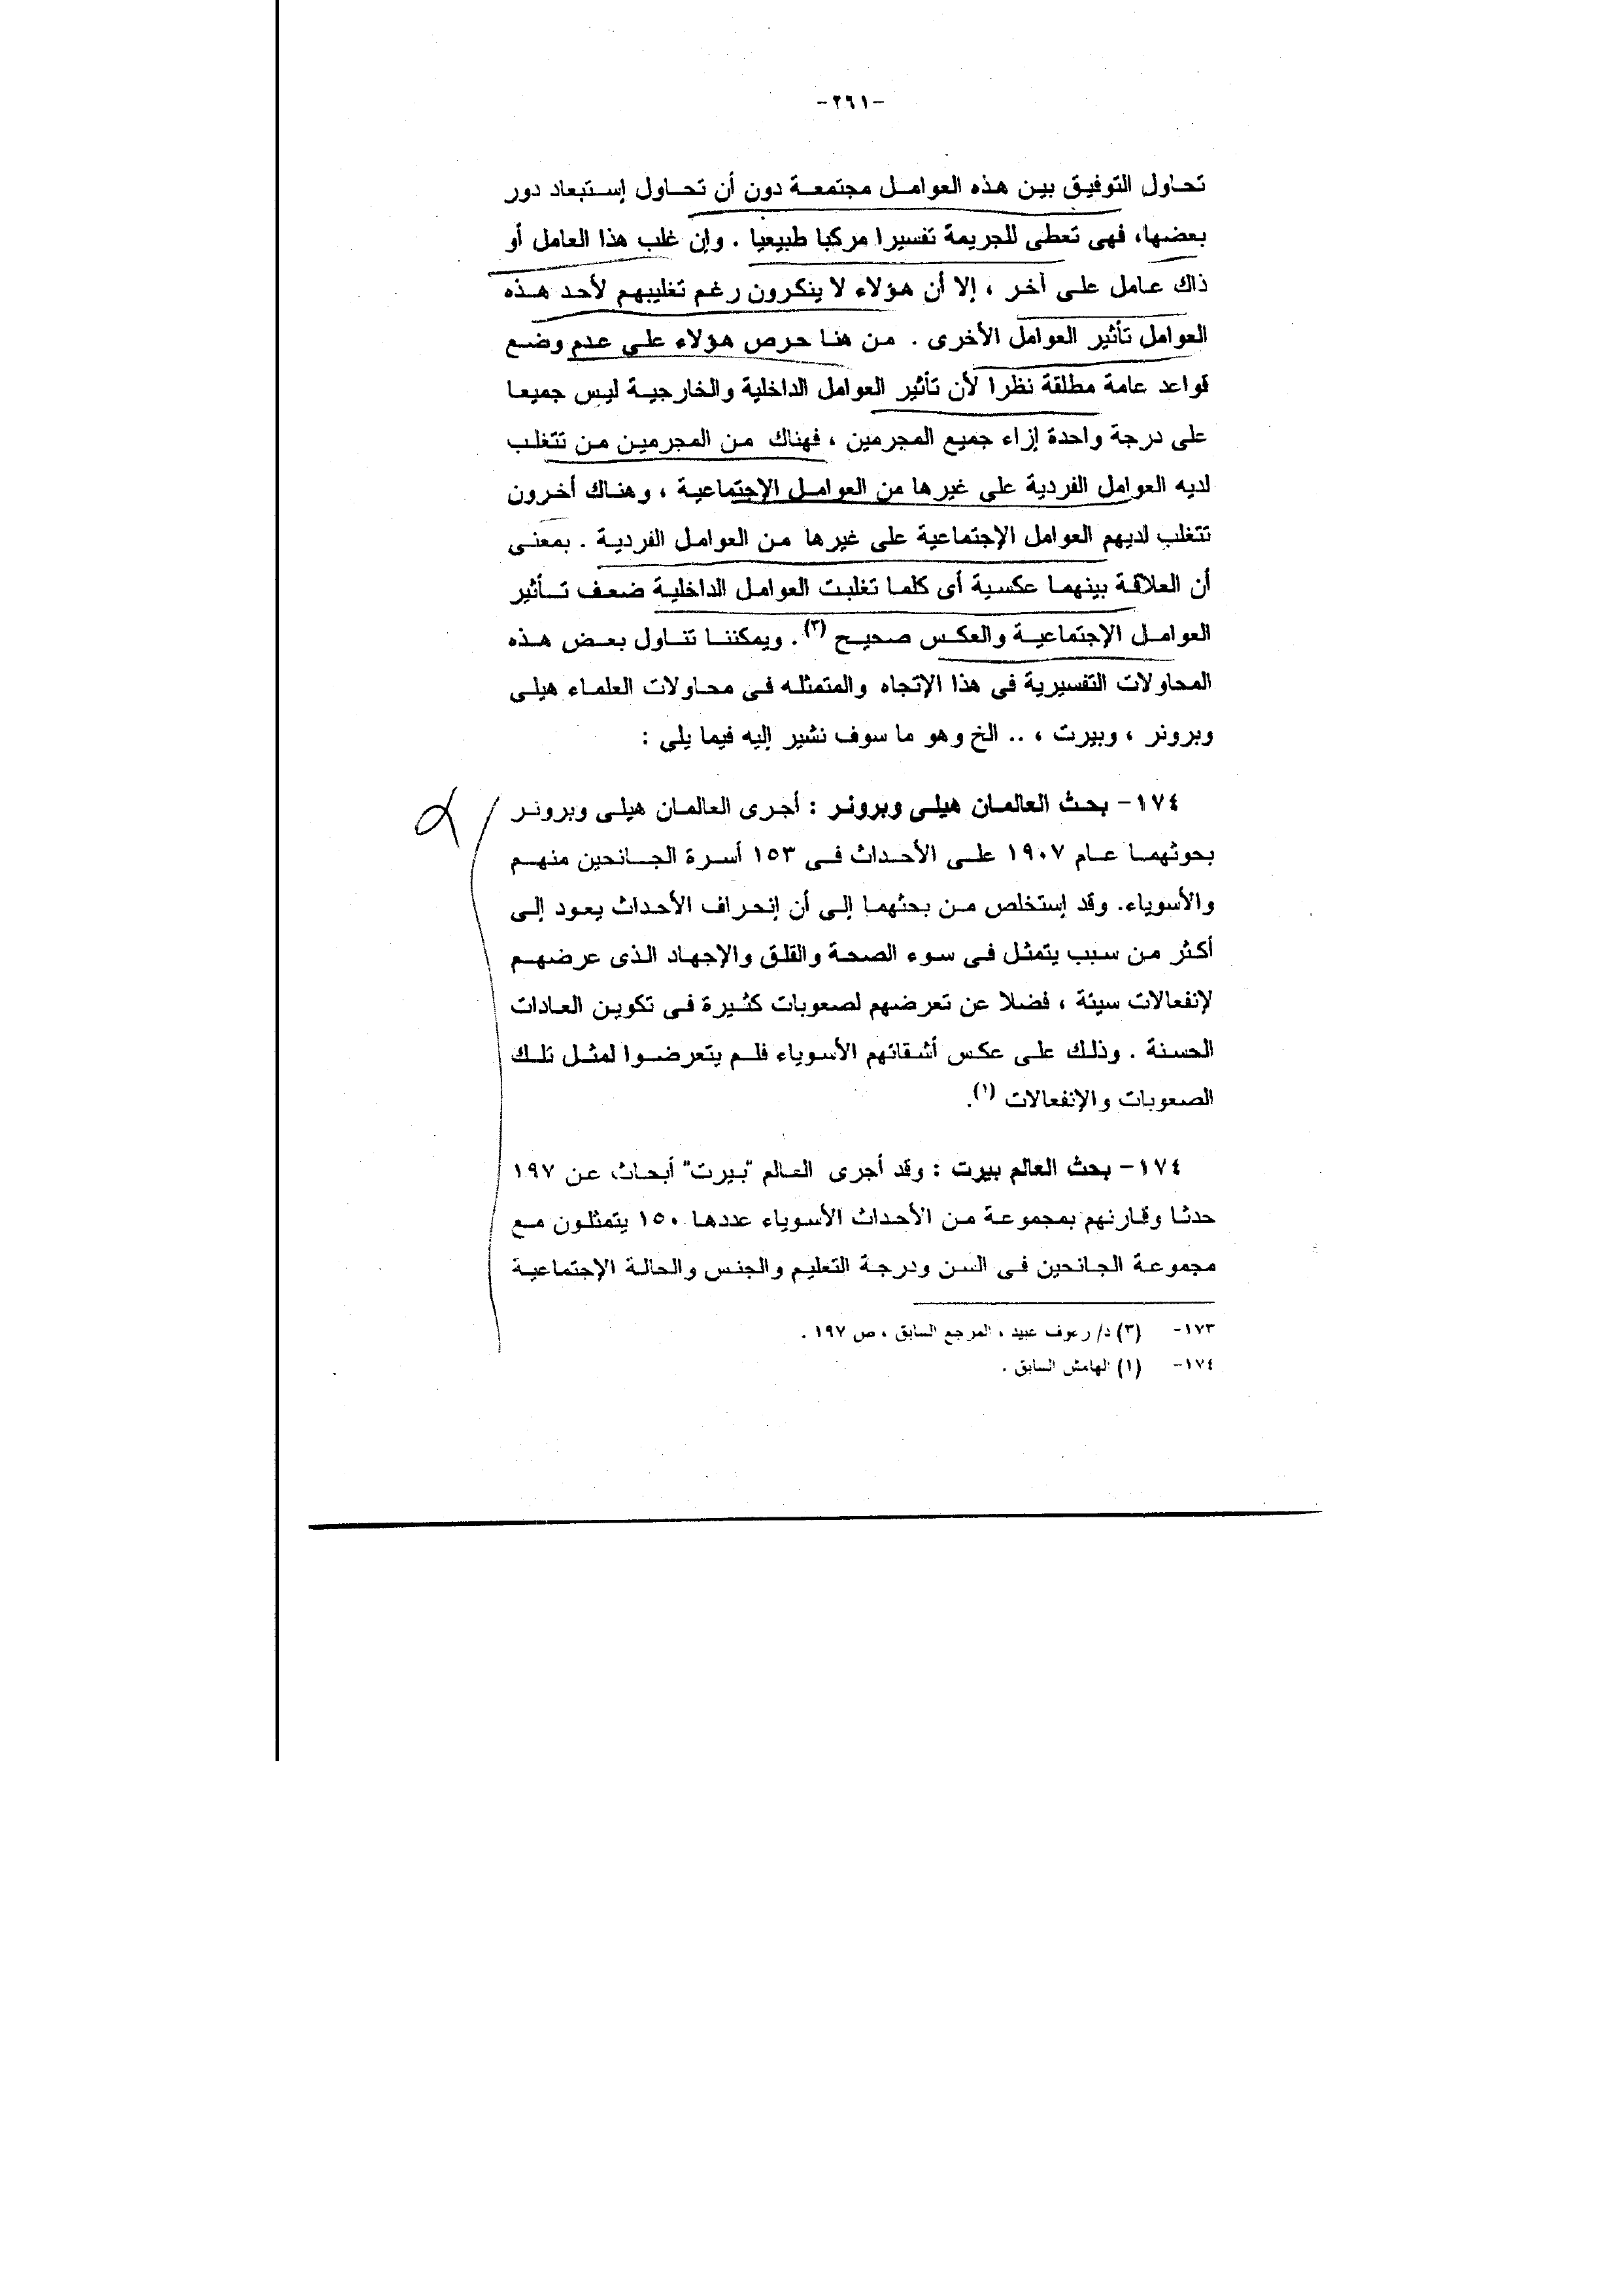 -٢٦١-
تحاول التوفيق بين هذه العوامل مجتمعة دون أن تحاول إستبعاد دور
بعضها، فهى تعطى للجريمة تفسيرا مركبا طبيعيا . وإن غلب هذا العامل أو
ذاك عامل على آخر ، إلا أن هؤلاء لا ينكرون رغم تغليبهم لأحد هذه
العوامل تأثير العوامل الأخرى . من هنا حرص هؤلاء على عدم وضع
قواعد عامة مطلقة نظرا لأن تأثير العوامل الداخلية والخارجية ليس جميعا
على درجة واحدة إزاء جميع المجرمين ، فهناك من المجرمين من تتغلب
لديه العوامل الفردية على غيرها من العوامل الإجتماعية ، وهناك أخرون
تتغلب لديهم العوامل الإجتماعية على غيرها من العوامل الفردية . بمعنى
أن العلاقة بينهما عكسية أى كلما تغلبت العوامل الداخلية ضعف تأثير
العوامل الإجتماعية والعكس صحيح (٣). ويمكننا تناول بعض هذه
المحاولات التفسيرية فى هذا الإتجاه والمتمثله فى محاولات العلماء هيلى
وبرونر ، وبيرت ، .. الخ وهو ما سوف نشير إليه فيما يلى :
١٧٤- بحث العالمان هيلى وبرونر : أجرى العالمان هيلى وبرونر
بحوثهما عام ١٩٠٧ على الأحداث فى ١٥٣ أسرة الجانحين منهم
والأسوياء. وقد إستخلص من بحثهما إلى أن إنحراف الأحداث يعود إلى
أكثر من سبب يتمثل فى سوء الصحة والقلق والإجهاد الذى عرضهم
لإنفعالات سيئة ، فضلا عن تعرضهم لصعوبات كثيرة فى تكوين العادات
الحسنة . وذلك على عكس أشقائهم الأسوياء فلم يتعرضوا لمثل تلك
الصعوبات والإنفعالات (١).
١٧٤- بحث العالم بيرت : وقد أجرى العالم "بيرت" أبحاث عن ١٩٧
حدثا وقارنهم بمجموعة من الأحداث الأسوياء عددها ١٥٠ يتمثلون مع
مجموعة الجانحين فى السن ودرجة التعليم والجنس والحالة الإجتماعية
١٧٣- (٣) د/ رءوف عبيد ، المرجع السابق ، ص ١٩٧ .
١٧٤- (١) الهامش السابق .